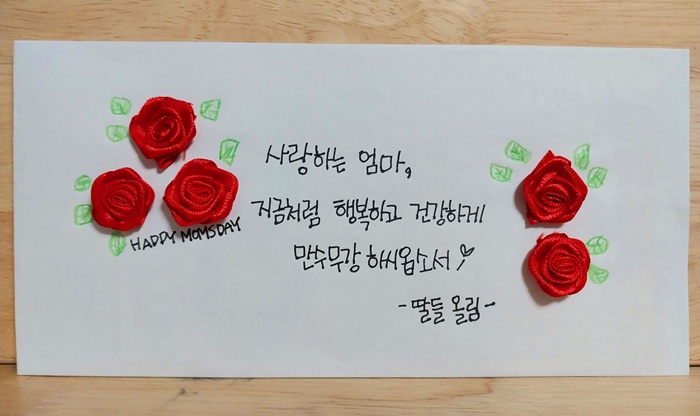 사랑하는 엄마,
지금처럼 행복하고 건강하게
만수무강 하시옵소서
-딸들 올림-
HAPPY MOMSDAY